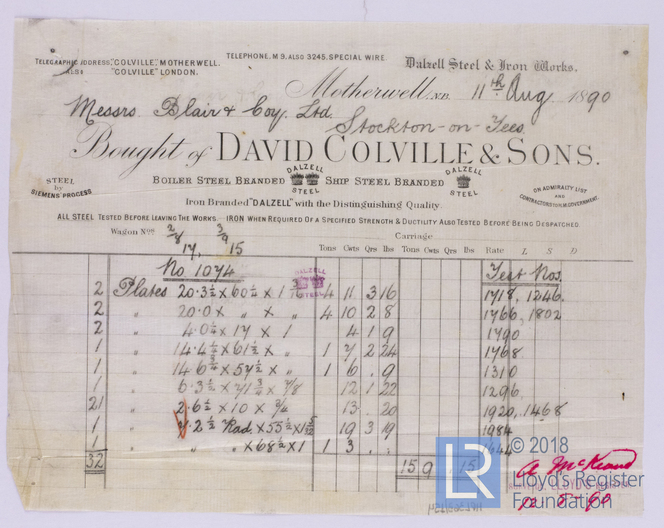 TELEGRAPHIC ADDRESS, "COLVILLE", MOTHERWELL.
ALSO "COLVILLE" LONDON.
TELEPHONE. M9. ALSO 3245, SPECIAL WIRE
Dalzell Steel & Iron Works.
Motherwell, N.B. 11th Aug 1890
Messrs. Blair & Coy. Ltd.
Stockton-on-Tees.
Bought of DAVID COLVILLE & SONS.
STEEL by SIEMENS' PROCESS
BOILER STEEL BRANDED DALZELL STEEL SHIP STEEL BRANDED DALZELL STEEL
ON ADMIRALTY LIST AND CONTRACTORS FOR H.M. GOVERNMENT.
Iron Branded "DALZELL" with the Distinguishing Quality.
ALL STEEL TESTED BEFORE LEAVING THE WORKS. — IRON WHEN REQUIRED OF A SPECIFIED STRENGTH & DUCTILITY ALSO TESTED BEFORE BEING DESPATCHED.
Wagon Nos 2/8 17. 3/9 15
Carriage
Tons Cwts Qrs lbs Tons Cwts Qrs lbs Rate £ S D
No 1074 DALZELL STEEL Test Nos.
2 Plates 20.3½ × 60¼ × 4 11 3 16 1718, 1246.
2 " 20.0 × " × " 4 10 2 8 1766, 1802
2 " 4.0¼ × 17 × 1 4 1 9 1790
1 " 14.4¼ × 61½ × " 1 7 2 24 1768
1 " 14.6¾ × 57½ × " 1 6 . 9 1310
1 " 6.3½ × 71¾ × 7/8 12 1 22 1296
21 " 2.6½ × 10 × ¾ 13 . 20 1920, 1468
1 " 2½ Rad × 55½ × 1 5/32 19 3 19 1984
1 " " × 68½ × 1 1 3 . .
32 15 9 . 15
A. McKeand
12-8-90
© 2018
Lloyd's Register
Foundation
LR